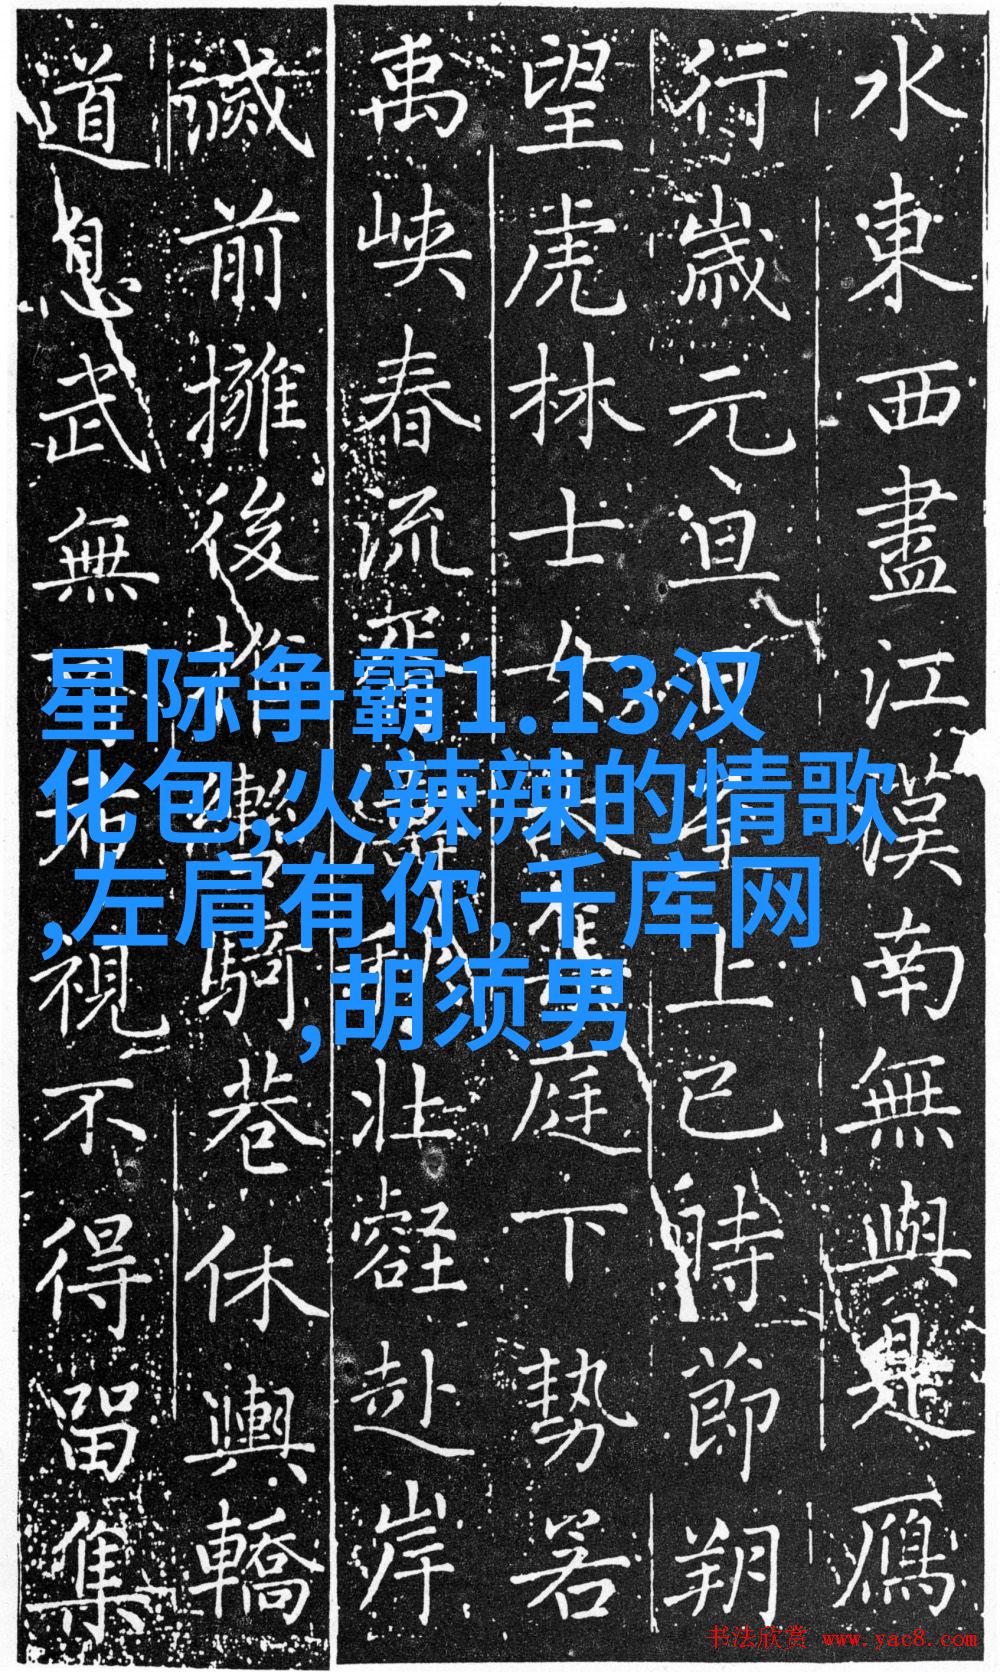 水東西盡江漢南無與是鴈
行歲元旦年上巳時節朔
望虎林士女庭下勢若
禹峽春流壯壑赴岸
滅前擁後騎巷休輿轎
道息武無視不得留集
星际争霸1.13汉
化包,火辣辣的情歌
,左肩有你,千库网
,胡须男
书法欣赏 www.yac8.com